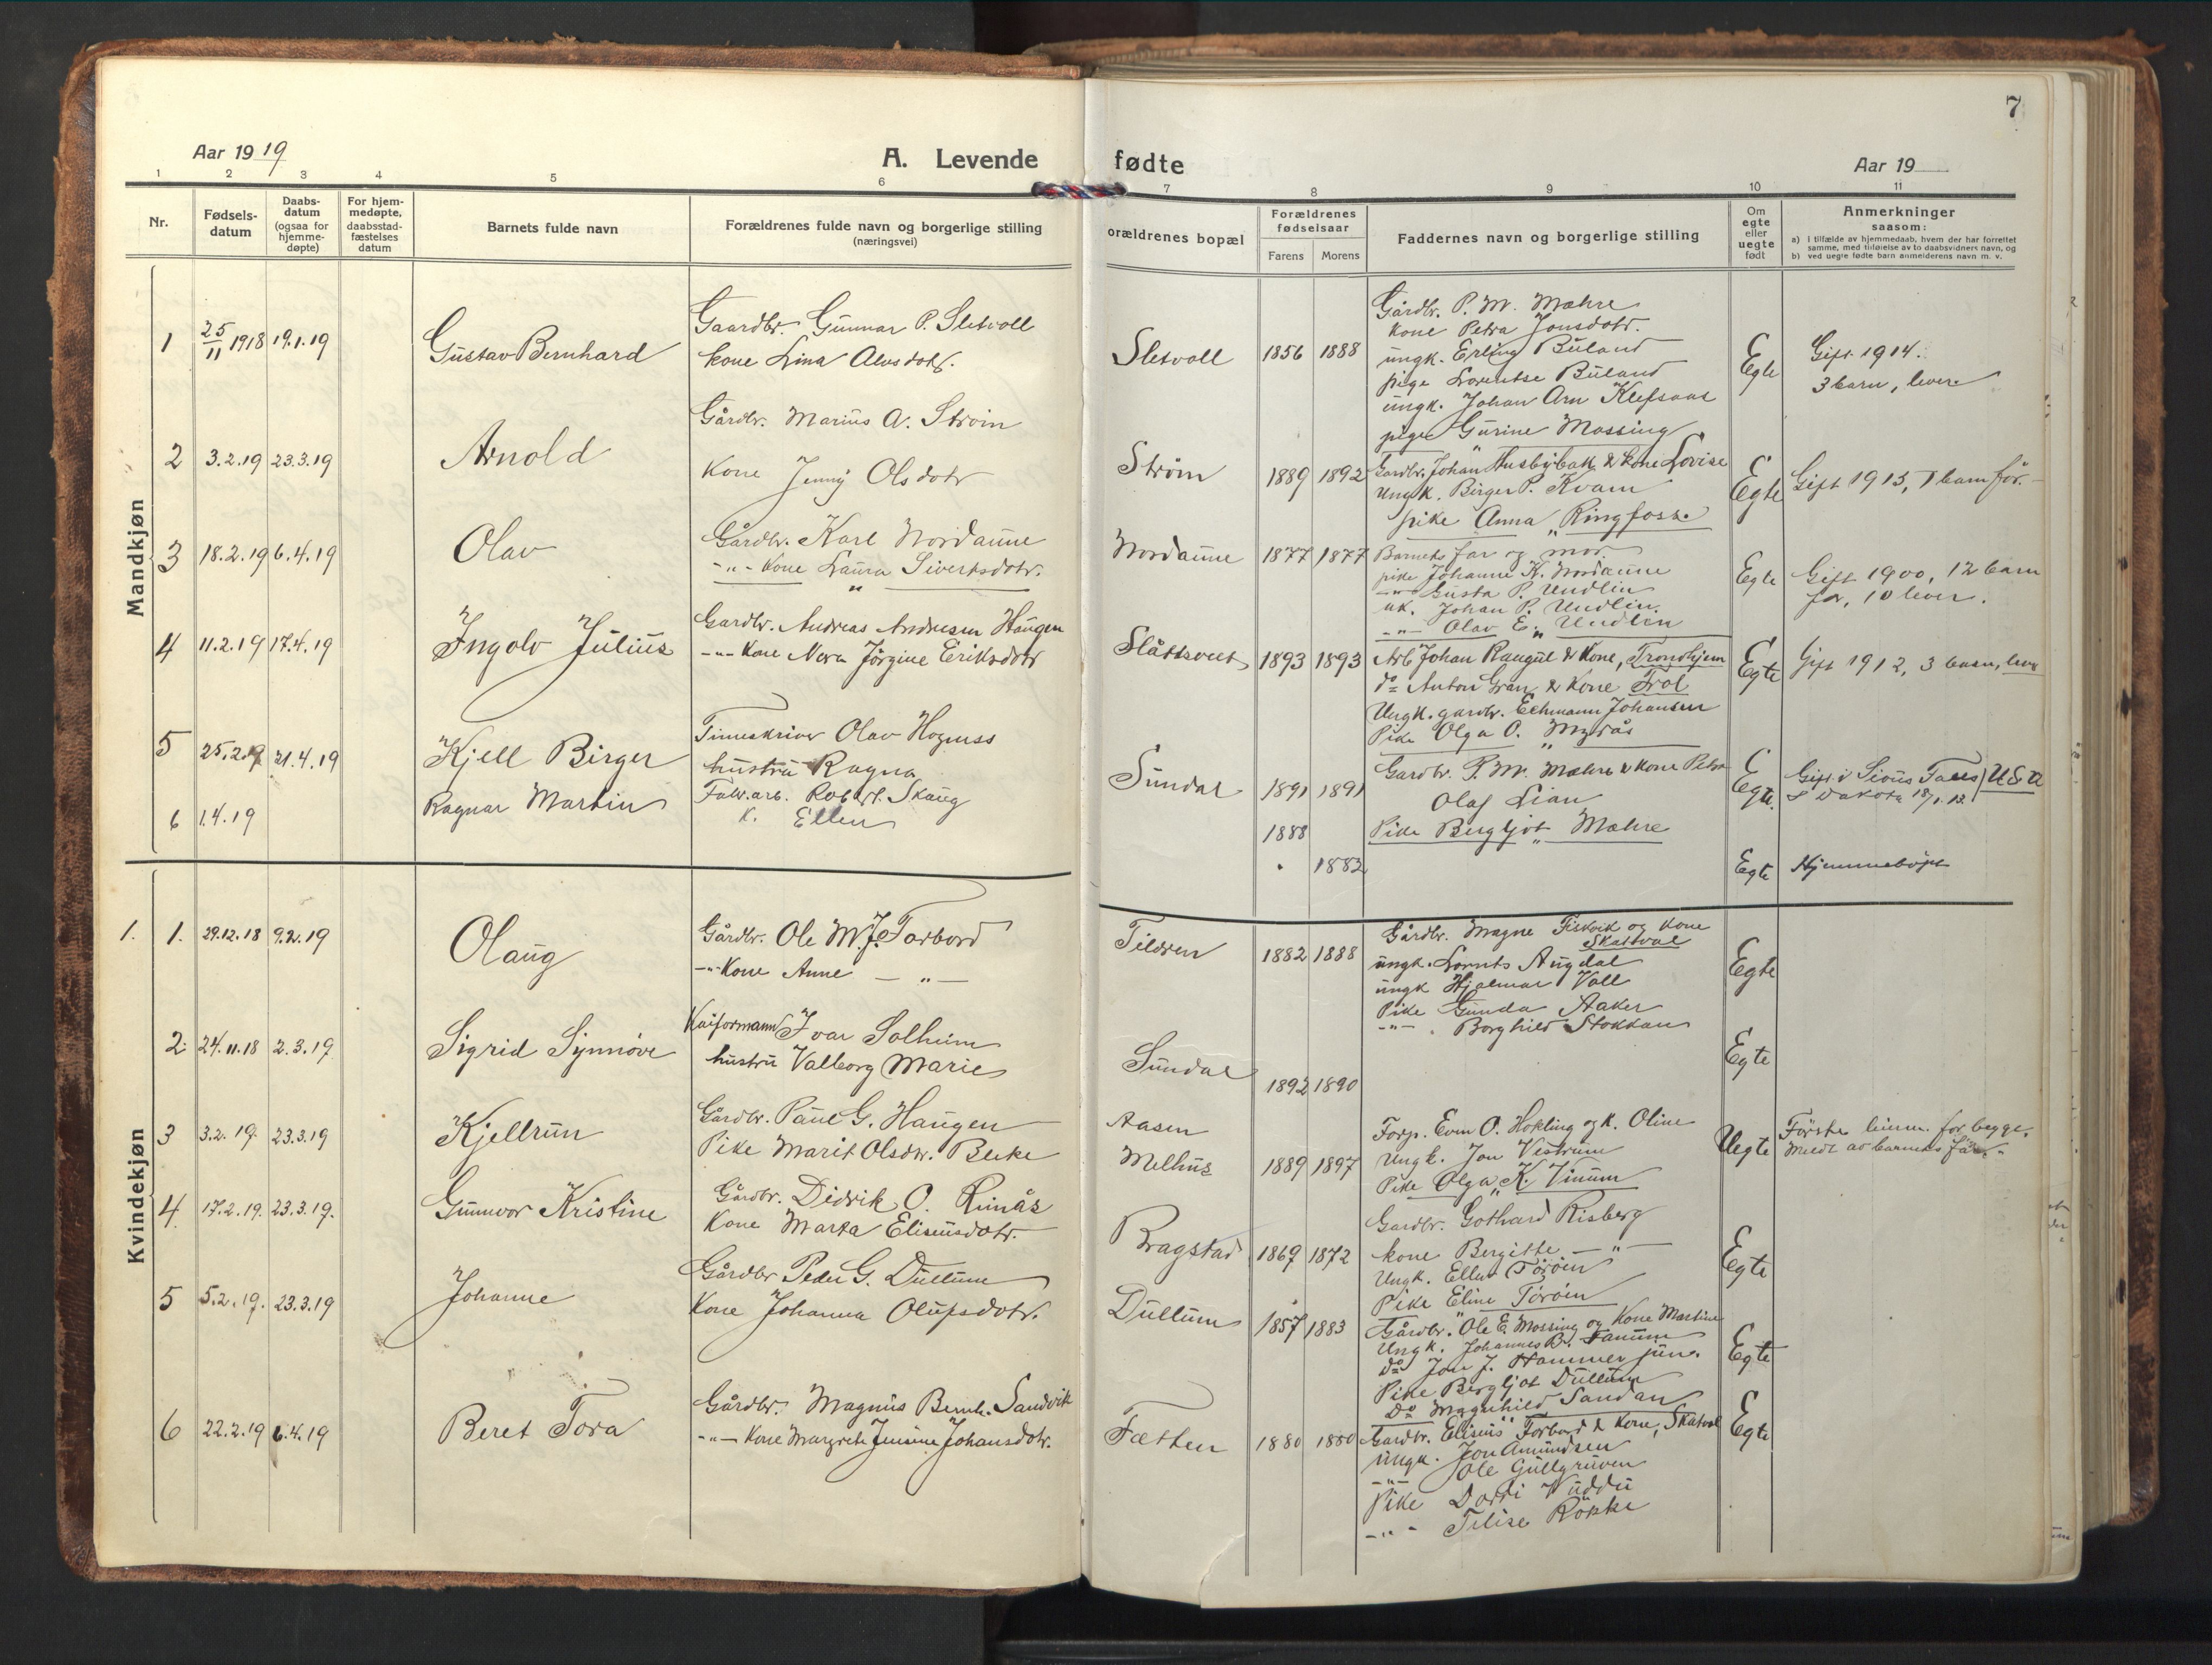 7
Aar 1919
A. Levende
fødte
Aar 19
1 2 3 4 5 6
7 8 9 10 11
Nr.
Fødsels-
datum
Daabs-
datum
(ogsaa for
hjemme-
døpte)
For hjem-
medøpte,
daabsstad-
fæstelses
datum
Barnets fulde navn
Forældrenes fulde navn og borgerlige stilling
(næringsvei)
orældrenes bopæl
Forældrenes
fødselsaar
Farens Morens
Faddernes navn og borgerlige stilling
Om
egte
eller
uegte
født
Anmerkninger
saasom:
a) I tilfælde av hjemmedaab, hvem der har forrettet
samme, med tilføielse av to daabsvidners navn, og
b) ved uegte fødte barn anmelderens navn m. v.
Mandkjøn
1 25/11 1918 19.1.19 Gustav Bernhard
Gaardbr. Gunnar P. Sletvoll
kone Lina Alvsdotr.
Sletvoll 1856 1888
Gårdbr. P. M. Mæhre
kone Petra Jonsdotr.
ungk. Erling Buland
pige Lorentse Buland
ungk. Johan Arn Klefsaas
pige Gurine Mossing
Egte
Gift 1914.
3 barn, lever
2 3.2.19 23.3.19 Arnold
Gårdbr. Marius A. Strøm
Kone Jenny Olsdotr
Strøm 1889 1892
Gardbr. Johan Husbybak & kone Lovise
Ungk. Birger P. Kvam
pike Anna „ Ringfoss
Egte
Gift 1913, 1 barn før.
3 18.2.19 6.4.19 Olav
Gårdbr. Karl Nordaune
-„- Kone Laura Sivertsdotr.
Nordaune 1877 1877
Barnets far og mor.
pike Johanne K. Nordaune
-„- Gusta P. Undlin
uk. Johan P. Undlin.
-„- Olav E. „ Undlin
Egte
Gift 1900, 12 barn
før, 10 lever.
4 11.2.19 17.4.19 Ingolv Julius
Gardbr. Andreas Andresen Haugen
-„- Kone Nera Jørgine Eriksdotr
Slåttsveet 1893 1893
Arb. Johan Raugul & Kone, Trondhjem
do Anton Gran & Kone Frol
Ungk. gardbr. Edmann Johansen
Pike Olga O. „ Myrås
Egte
Gift 1912, 3 barn, lever
5 25.2.19 21.4.19 Kjell Birger
Timeskriver Olav Hogness
hustru Ragna
Sundal 1891 1891
Gardbr. P. M. Mæhre & kone Petra
Olaf Lian
Pike Bergljot „ Mæhre
Egte.
Gift i Sioux Falls
S Dakota 18/1. 13. U S A
6 1.4.19 Ragnar Martin
Fabr.arb. Robert Skaug
K. Ellen
1888
1882
Egte
Hjemmedøpt
Kvindekjøn
1. 1. 29.12.18 9.2.19 Olaug
Gårdbr. Ole M. J. Forbord
-„- Kone Anne — „ —
Tildren 1882 1888
Gårdbr. Magne Fiskvik og kone
Skatval
ungk. Lornts Augdal
ungk Hjalmar Vall
Pike Gunda Aaker
-„- Borghild Stokkan
Egte
2. 24.11.18 2.3.19 Sigrid Synnøve
Kaiformann Ivar Solheim
hustru Valborg Marie
Sundal 1892 1890
Egte
3 3.2.19. 23.3.19 Kjellrun
Gårdbr. Paul G. Haugen
Pike Marit Olsdtr. Bleke
Aasen
Melhus 1889 1897
Forp. Even O. Hokling og K. Oline
Ungk. Jon Vistrum
Pike Olga „ K. Vinum
Uegte
Første leierm. for begge.
Meldt av barnets far.
4. 17.2.19. 23.3.19. Gunnvor Kristine
Gårdbr. Didrik O. Rinås
Kone Marta Eliseusdotr.
Bragstad 1869 1872
Gardbr. Gothard Risberg
kone Bergitte — „ —
Ungk. Ellur Tørøien
Pike Eline Tørøien
Egte
5 5.2.19. 23.3.19 Johanne
Gårdbr Peder G. Dullum
Kone Johanna Olufsdotr.
Dullum 1857 1883
Gårdbr. Ole E. Mossing og Kone Martine
Ungk. Johannes B. Fanum
do Jon J. Hammer jun.
Pike Bergljot Dullum
Do Magnhild Sandan
Egte
6 22.2.19 6.4.19 Beret Tora
Gårdbr. Magnus Bernh. Sandvik
-„- Kone Margrete Jensine Johansdotr.
Fætten 1880 1880
Gardbr. Eliseus Forbord & kone, Skatval
ungk. Jon Amundsen
-„- Ole Gullgruven
Pike Dordi Kuddu
-„- Telise Røkke
Egte